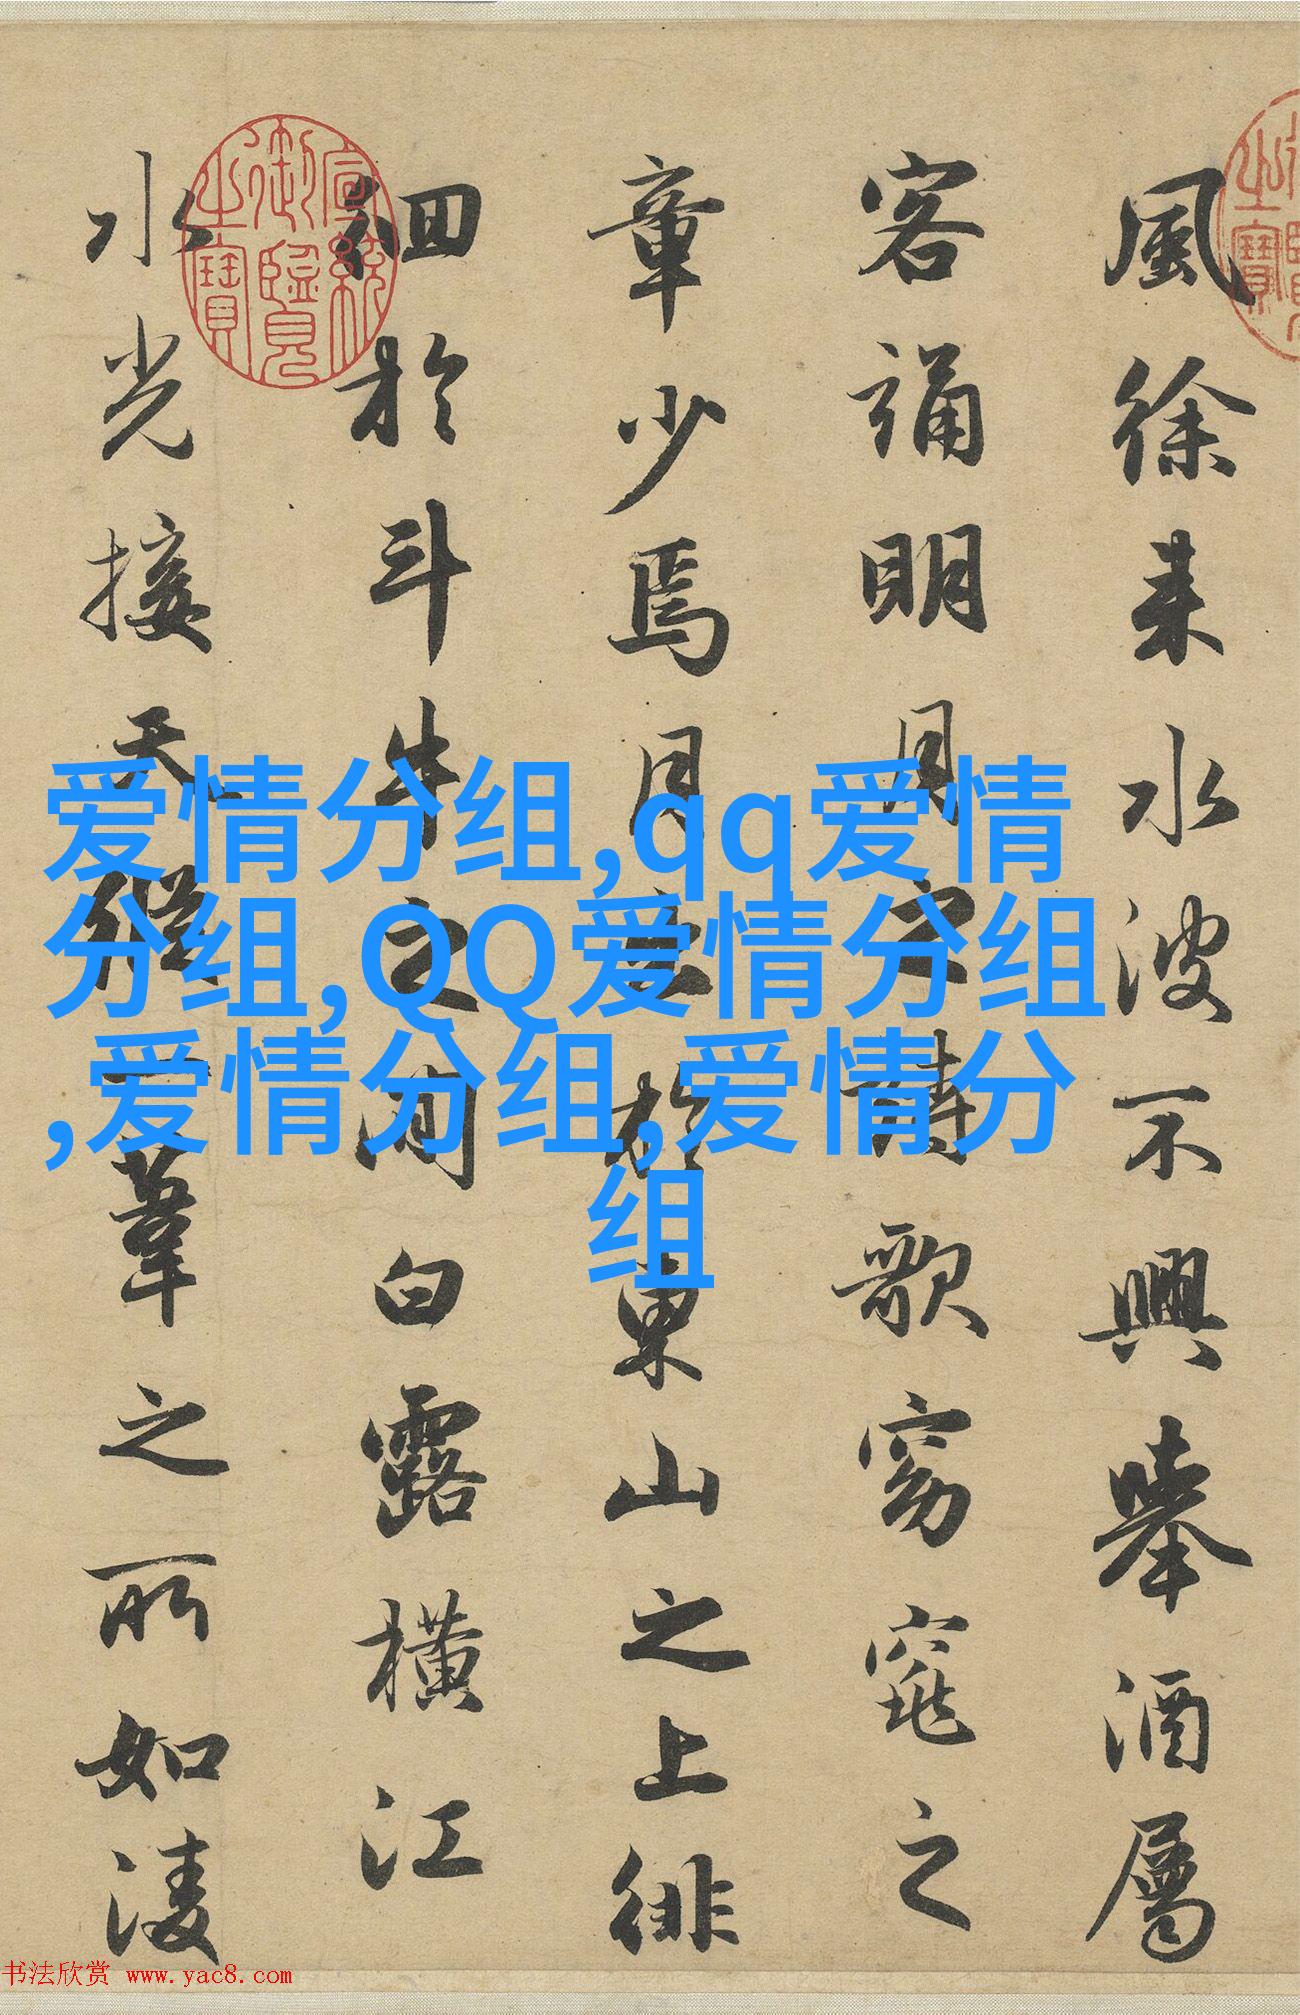 風徐来水波不興舉酒屬
客誦明月之詩歌窈窕之
章少焉月出於東山之上徘
徊於斗牛之間白露橫江
水光接天縱一葦之所如淩
宣統御覽之寶
爱情分组,qq爱情
分组,QQ爱情分组
,爱情分组,爱情分
组
书法欣赏 www.yac8.com